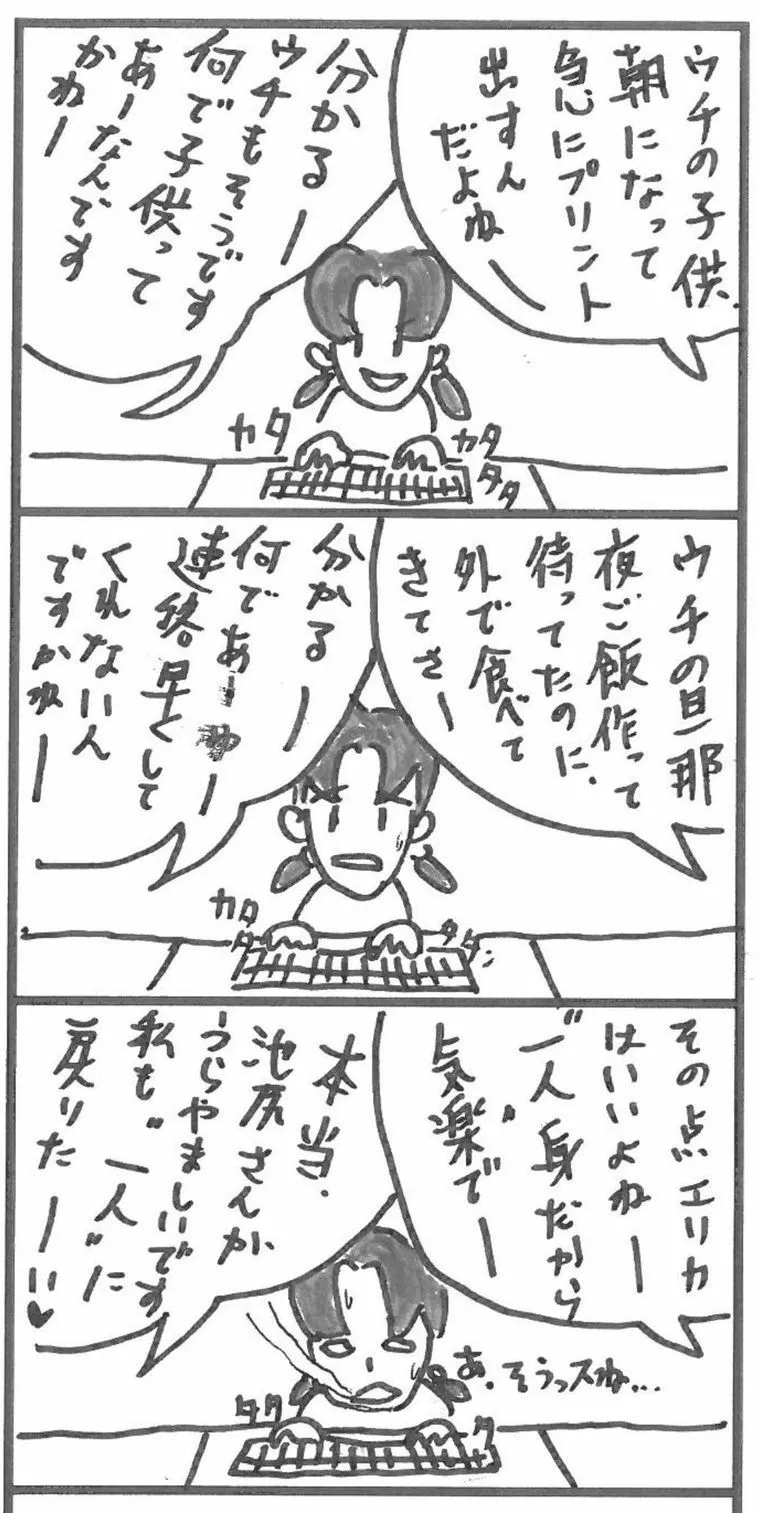 ウチの子供、
朝になって
急にプリント
出すん
だよねー
分かるー
ウチもそうです
何で子供って
あーなんです
かねー
カタ
カタ
タタ
ウチの旦那
夜ご飯作って
待ってたのに、
外で食べて
きてさー
分かるー
何であー
連絡早くして
くれないん
ですかねー
カタ
タ
タタン
その点エリカ
はいいよねー
"一人"身だから
気楽でー
本当、
池尻さんが
うらやましいです
私も"一人"に
戻りたーい♥
あ、そうっスね…
タタ
タ